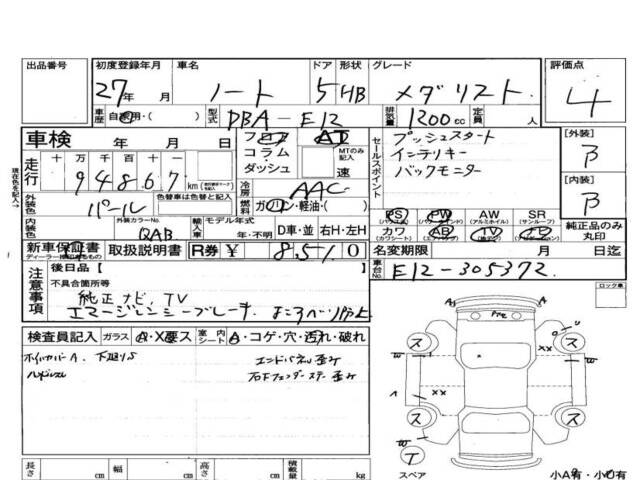 出品番号 初度登録年月 車名 ドア 形状 グレード 評価点
27年 月 ノート 5 HB メダリスト 4
車歴 自家用・( ) 型式 DBA-E12 排気量 1200cc 定員 人
車検 年 月 日 フロア AT
コラム・ダッシュ MTのみ記入 速
走行 十万千百十一
94867 km
冷房 AAC
燃料 ガソリン・軽油・( )
セールスポイント プッシュスタート
インテリキー
バックモニター
[外装] B
[内装] B
外装色 パール 色替車は色替と記入
内装色 外装カラーNo. QAB 輸入車 モデル年式 年・不明 D車・並 右H・左H
PS PW AW SR
(パワステ) (パワーウインド) (アルミホイル) (サンルーフ)
カワ AB TV ナビ
(カワシート) (エアバッグ)
純正品のみ丸印
新車保証書 取扱説明書 R券 ¥ 8,510
ディーラー印のあるもの
名変期限 月 日迄
車台No. E12-305372
現在色を記入
注意事項 後日品[ ]
不具合箇所等
純正ナビ、TV
エマージェンシーブレーキ、よこすべり防止
ロック車
検査員記入 ガラス A・X要ス 室内シート A・コゲ・穴・汚れ・破れ
ホイルカバーA、下廻りS エンドパネル歪み
右Fフェンダーステー歪み
長さ cm 幅 cm 高さ cm 積載量 kg
スペア 小A有・小U有